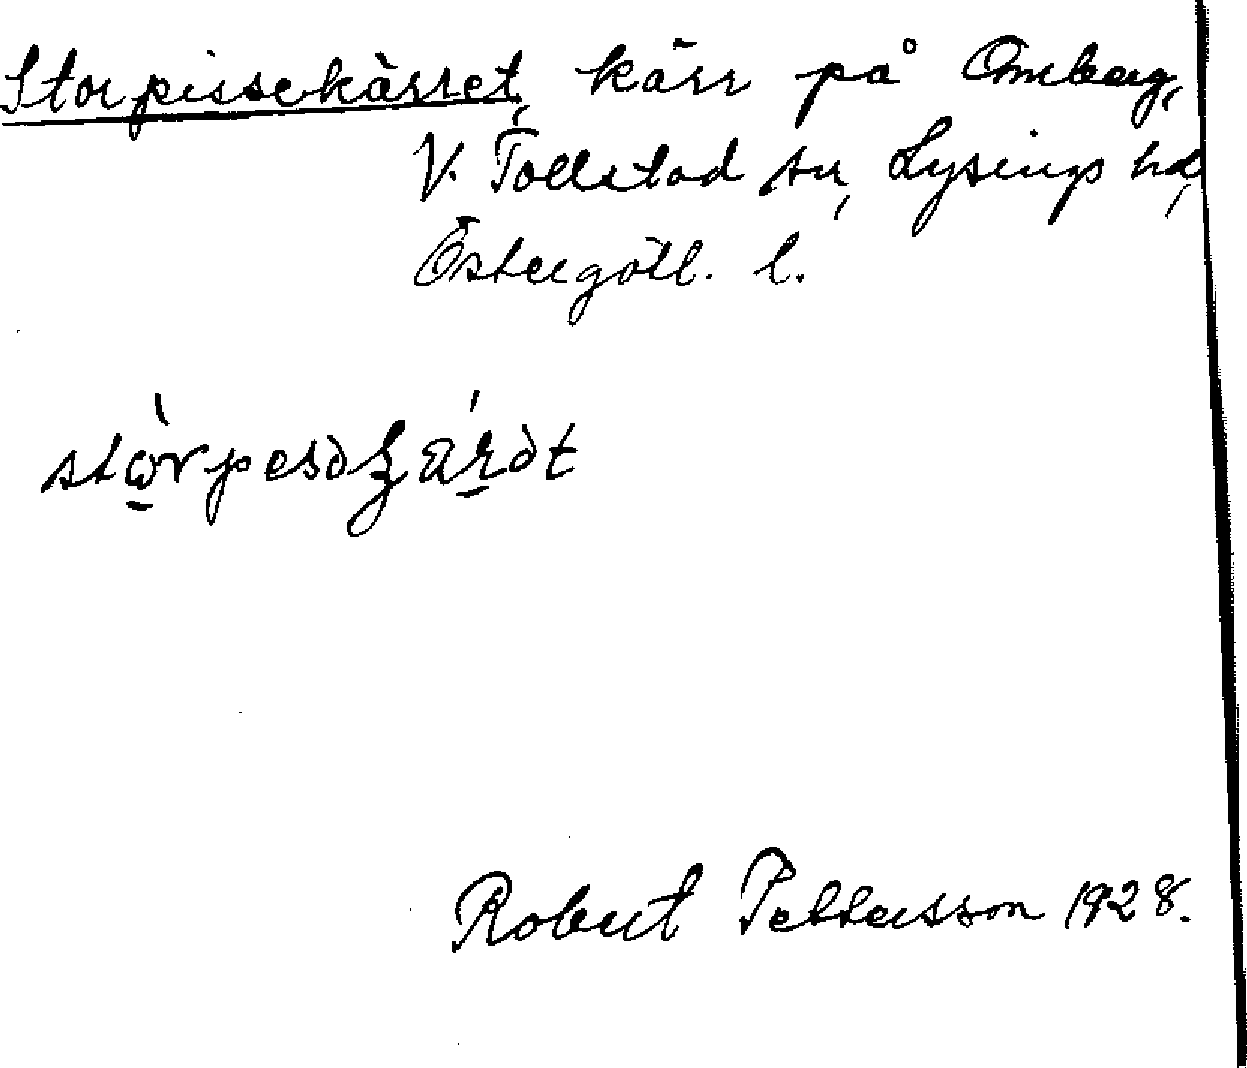 Storpissekärret, kärr på Omberg,
V. Tollstad sn, Lysings hd,
Östergötl. l.
Robert Pettersson 1928.